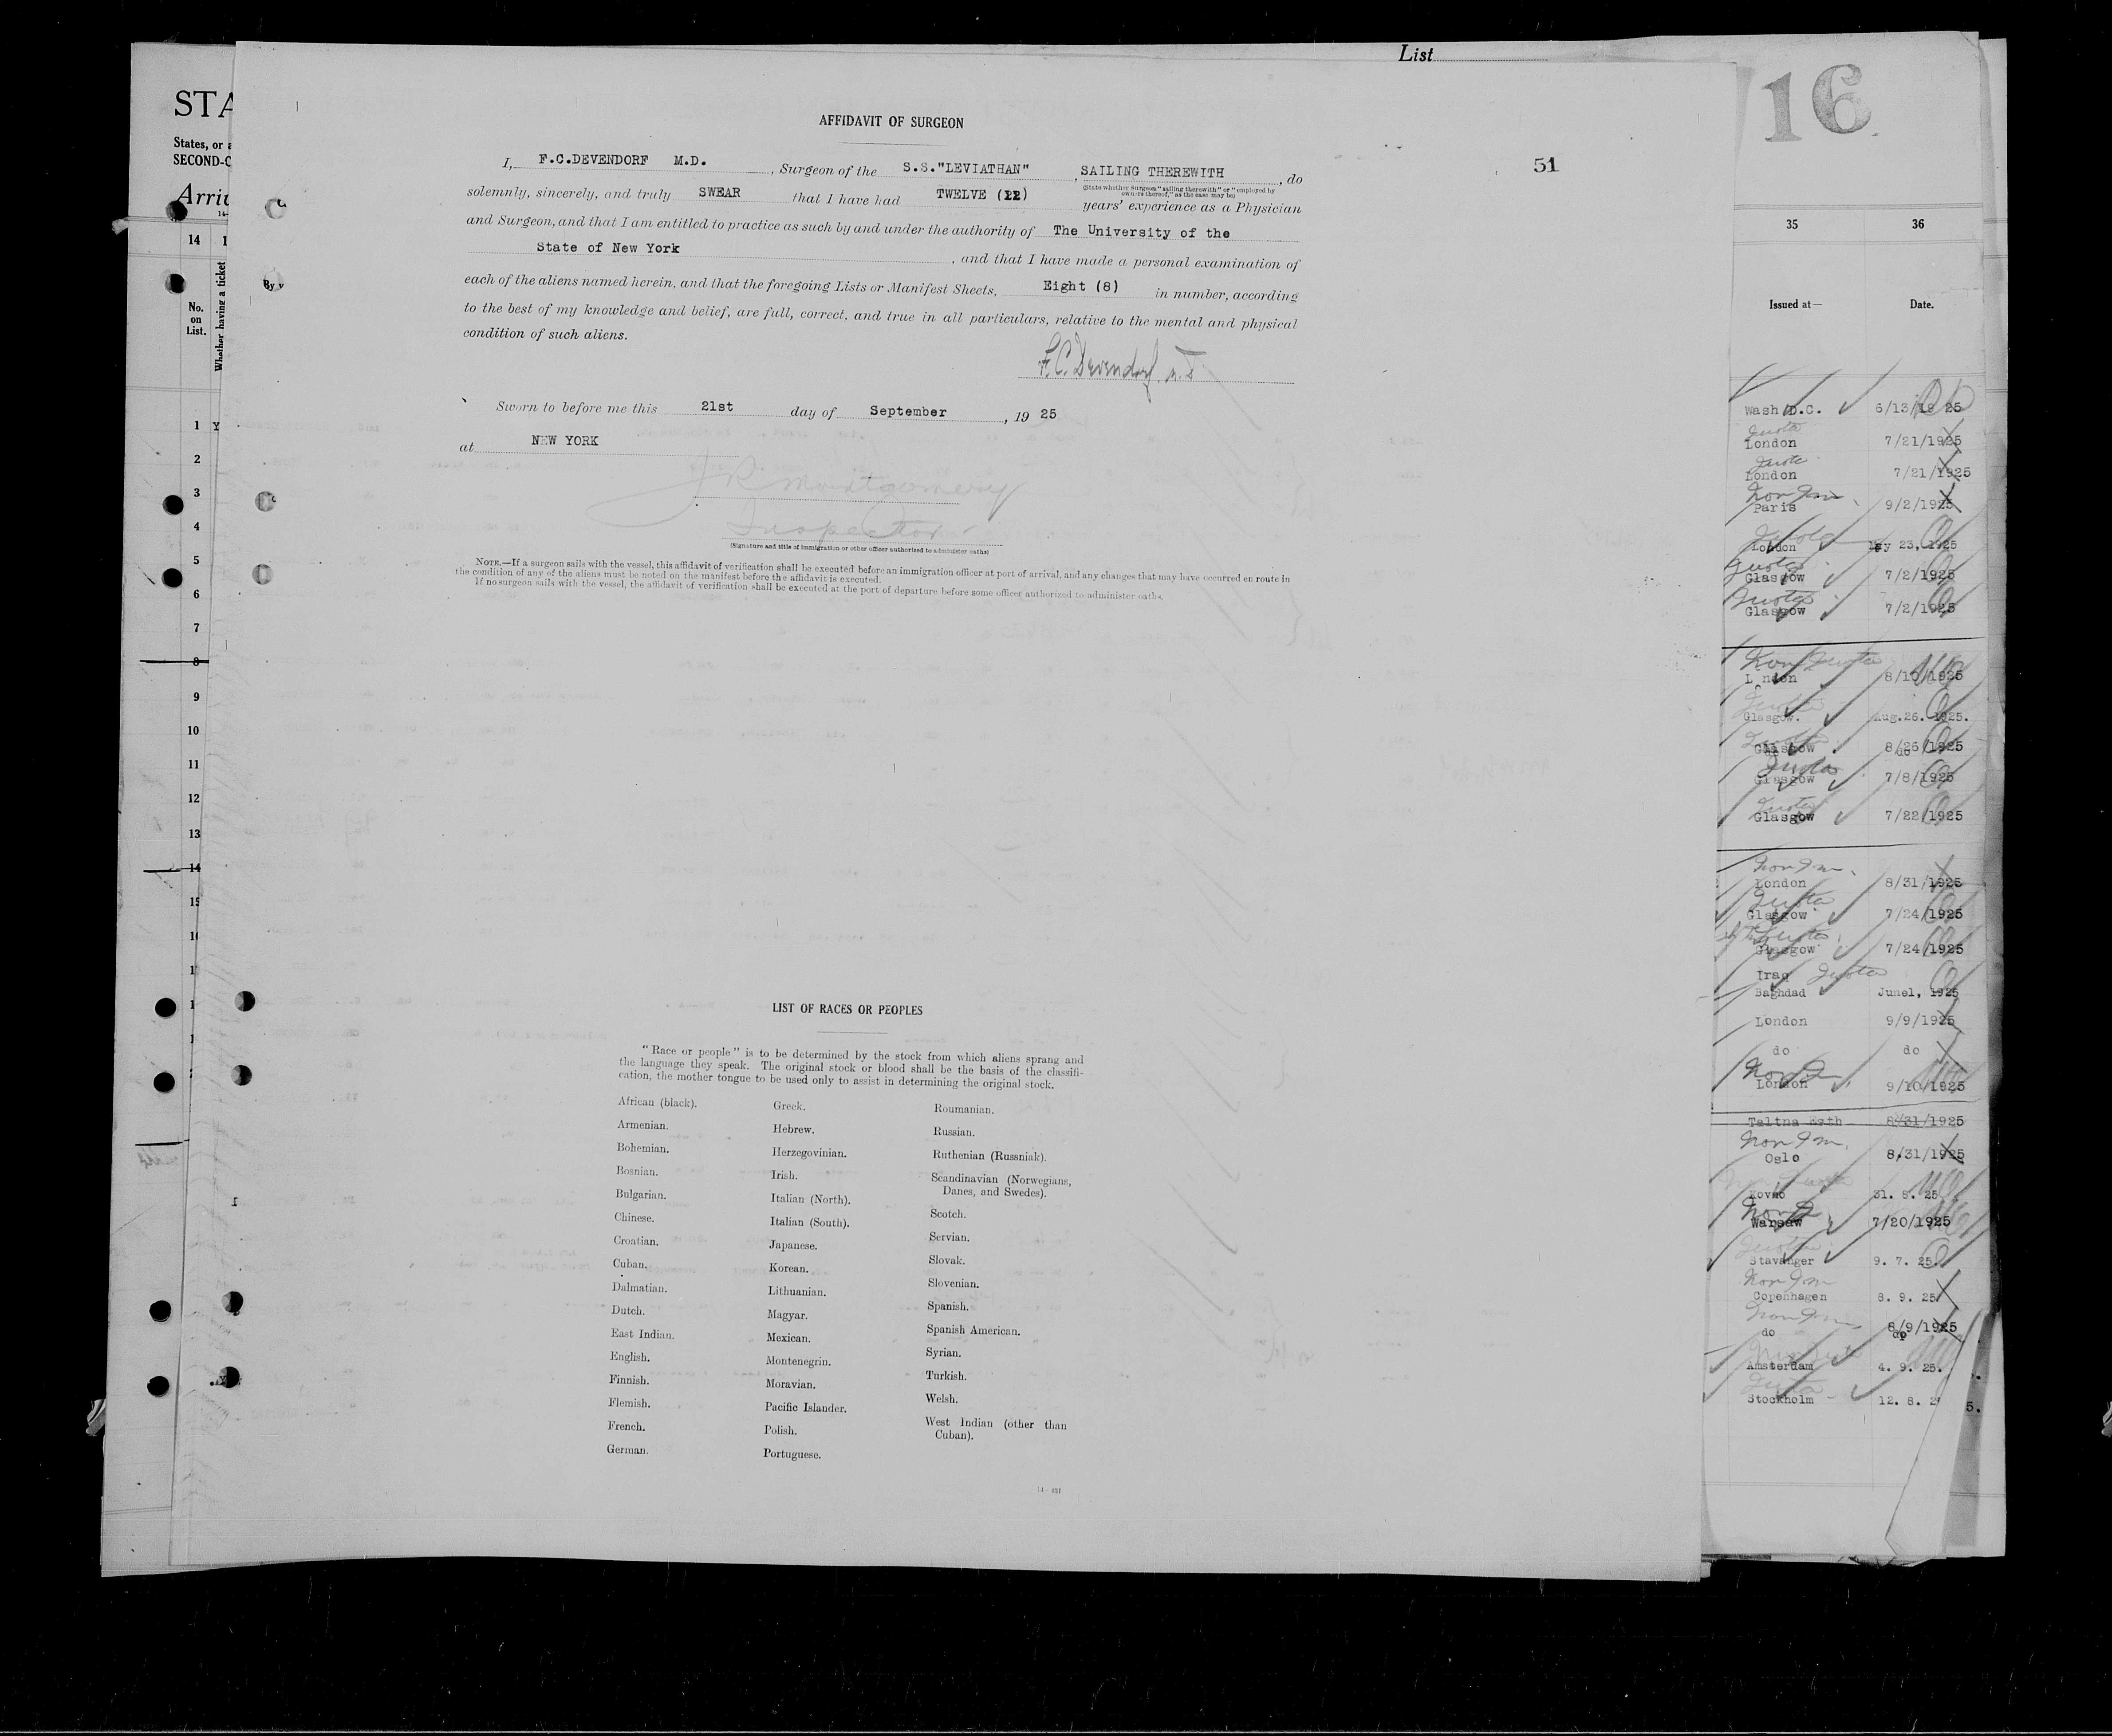 List
16
51
STA
States, or a
SECOND-C
Arriv
14
No.
on
List.
Whether having a ticket
By v
1 Y
2
3
4
5
6
7
8
9
10
11
12
13
14
15
AFFIDAVIT OF SURGEON
I, F.C.DEVENDORF M.D. , Surgeon of the S.S."LEVIATHAN" , SAILING THEREWITH , do
(State whether surgeon "sailing therewith" or "employed by
owners thereof," as the case may be)
solemnly, sincerely, and truly SWEAR that I have had TWELVE (12) years' experience as a Physician
and Surgeon, and that I am entitled to practice as such by and under the authority of The University of the
State of New York , and that I have made a personal examination of
each of the aliens named herein, and that the foregoing Lists or Manifest Sheets, Eight (8) in number, according
to the best of my knowledge and belief, are full, correct, and true in all particulars, relative to the mental and physical
condition of such aliens.
F.C. Devendorf. M.D.
Sworn to before me this 21st day of September , 19 25
at NEW YORK
J R Montgomery
Inspector
(Signature and title of immigration or other officer authorized to administer oaths)
NOTE.—If a surgeon sails with the vessel, this affidavit of verification shall be executed before an immigration officer at port of arrival, and any changes that may have occurred en route in
the condition of any of the aliens must be noted on the manifest before the affidavit is executed.
If no surgeon sails with the vessel, the affidavit of verification shall be executed at the port of departure before some officer authorized to administer oaths.
LIST OF RACES OR PEOPLES
"Race or people" is to be determined by the stock from which aliens sprang and
the language they speak. The original stock or blood shall be the basis of the classifi-
cation, the mother tongue to be used only to assist in determining the original stock.
African (black).
Armenian.
Bohemian.
Bosnian.
Bulgarian.
Chinese.
Croatian.
Cuban.
Dalmatian.
Dutch.
East Indian.
English.
Finnish.
Flemish.
French.
German.
Greek.
Hebrew.
Herzegovinian.
Irish.
Italian (North).
Italian (South).
Japanese.
Korean.
Lithuanian.
Magyar.
Mexican.
Montenegrin.
Moravian.
Pacific Islander.
Polish.
Portuguese.
Roumanian.
Russian.
Ruthenian (Russniak).
Scandinavian (Norwegians,
Danes, and Swedes).
Scotch.
Servian.
Slovak.
Slovenian.
Spanish.
Spanish American.
Syrian.
Turkish.
Welsh.
West Indian (other than
Cuban).
35 36
Issued at— Date.
Wash D.C. 6/13/19 25
Quota
London 7/21/1925
Quota
London 7/21/1925
Non Im
Paris 9/2/1925
Quota
London 23, 1925
Quota
Glasgow 7/2/1925
Quota
Glasgow 7/2/1925
Non Quota
London 8/1 /1925
Quota
Glasgow. Aug.26. 1925.
Glasgow 8/26/1925
do
Quota
Glasgow 7/8/1925
Quota
Glasgow 7/22/1925
Non Im
London 8/31/1925
Quota
Glasgow 7/24/1925
Quota
Glasgow 7/24/1925
Iraq Quota
Baghdad June1, 1925
London 9/9/1925
do do
London 9/10/1925
8/31/1925
Non Im.
Oslo 8/31/1925
Kovno 31. 8. 25
Warsaw 7/20/1925
Quota
Stavanger 9. 7. 25.
Non Im
Copenhagen 8. 9. 25
Non Im
do 8/9/1925
do
Amsterdam 4. 9. 25.
Quota
Stockholm 12. 8. 2
5.